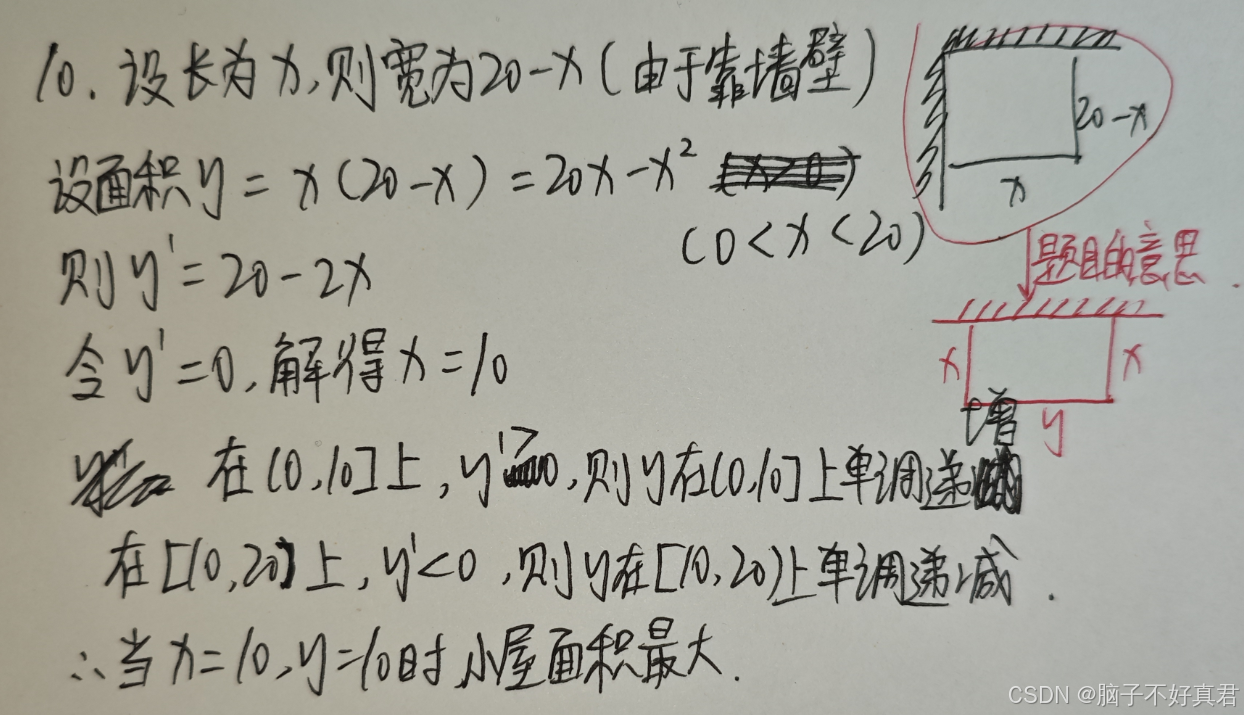 10. 设长为x,则宽为20-x(由于靠墙壁)
20-x
x
设面积y = x(20-x) = 20x-x²
(0<x<20)
题目的意思.
则y'=20-2x
x x
y
令y'=0,解得x=10
增
在(0,10]上,y'≥0,则y在(0,10]上单调递
在[10,20)上,y'<0,则y在[10,20)上单调递减.
∴当x=10,y=10时小屋面积最大.
CSDN @脑子不好真君